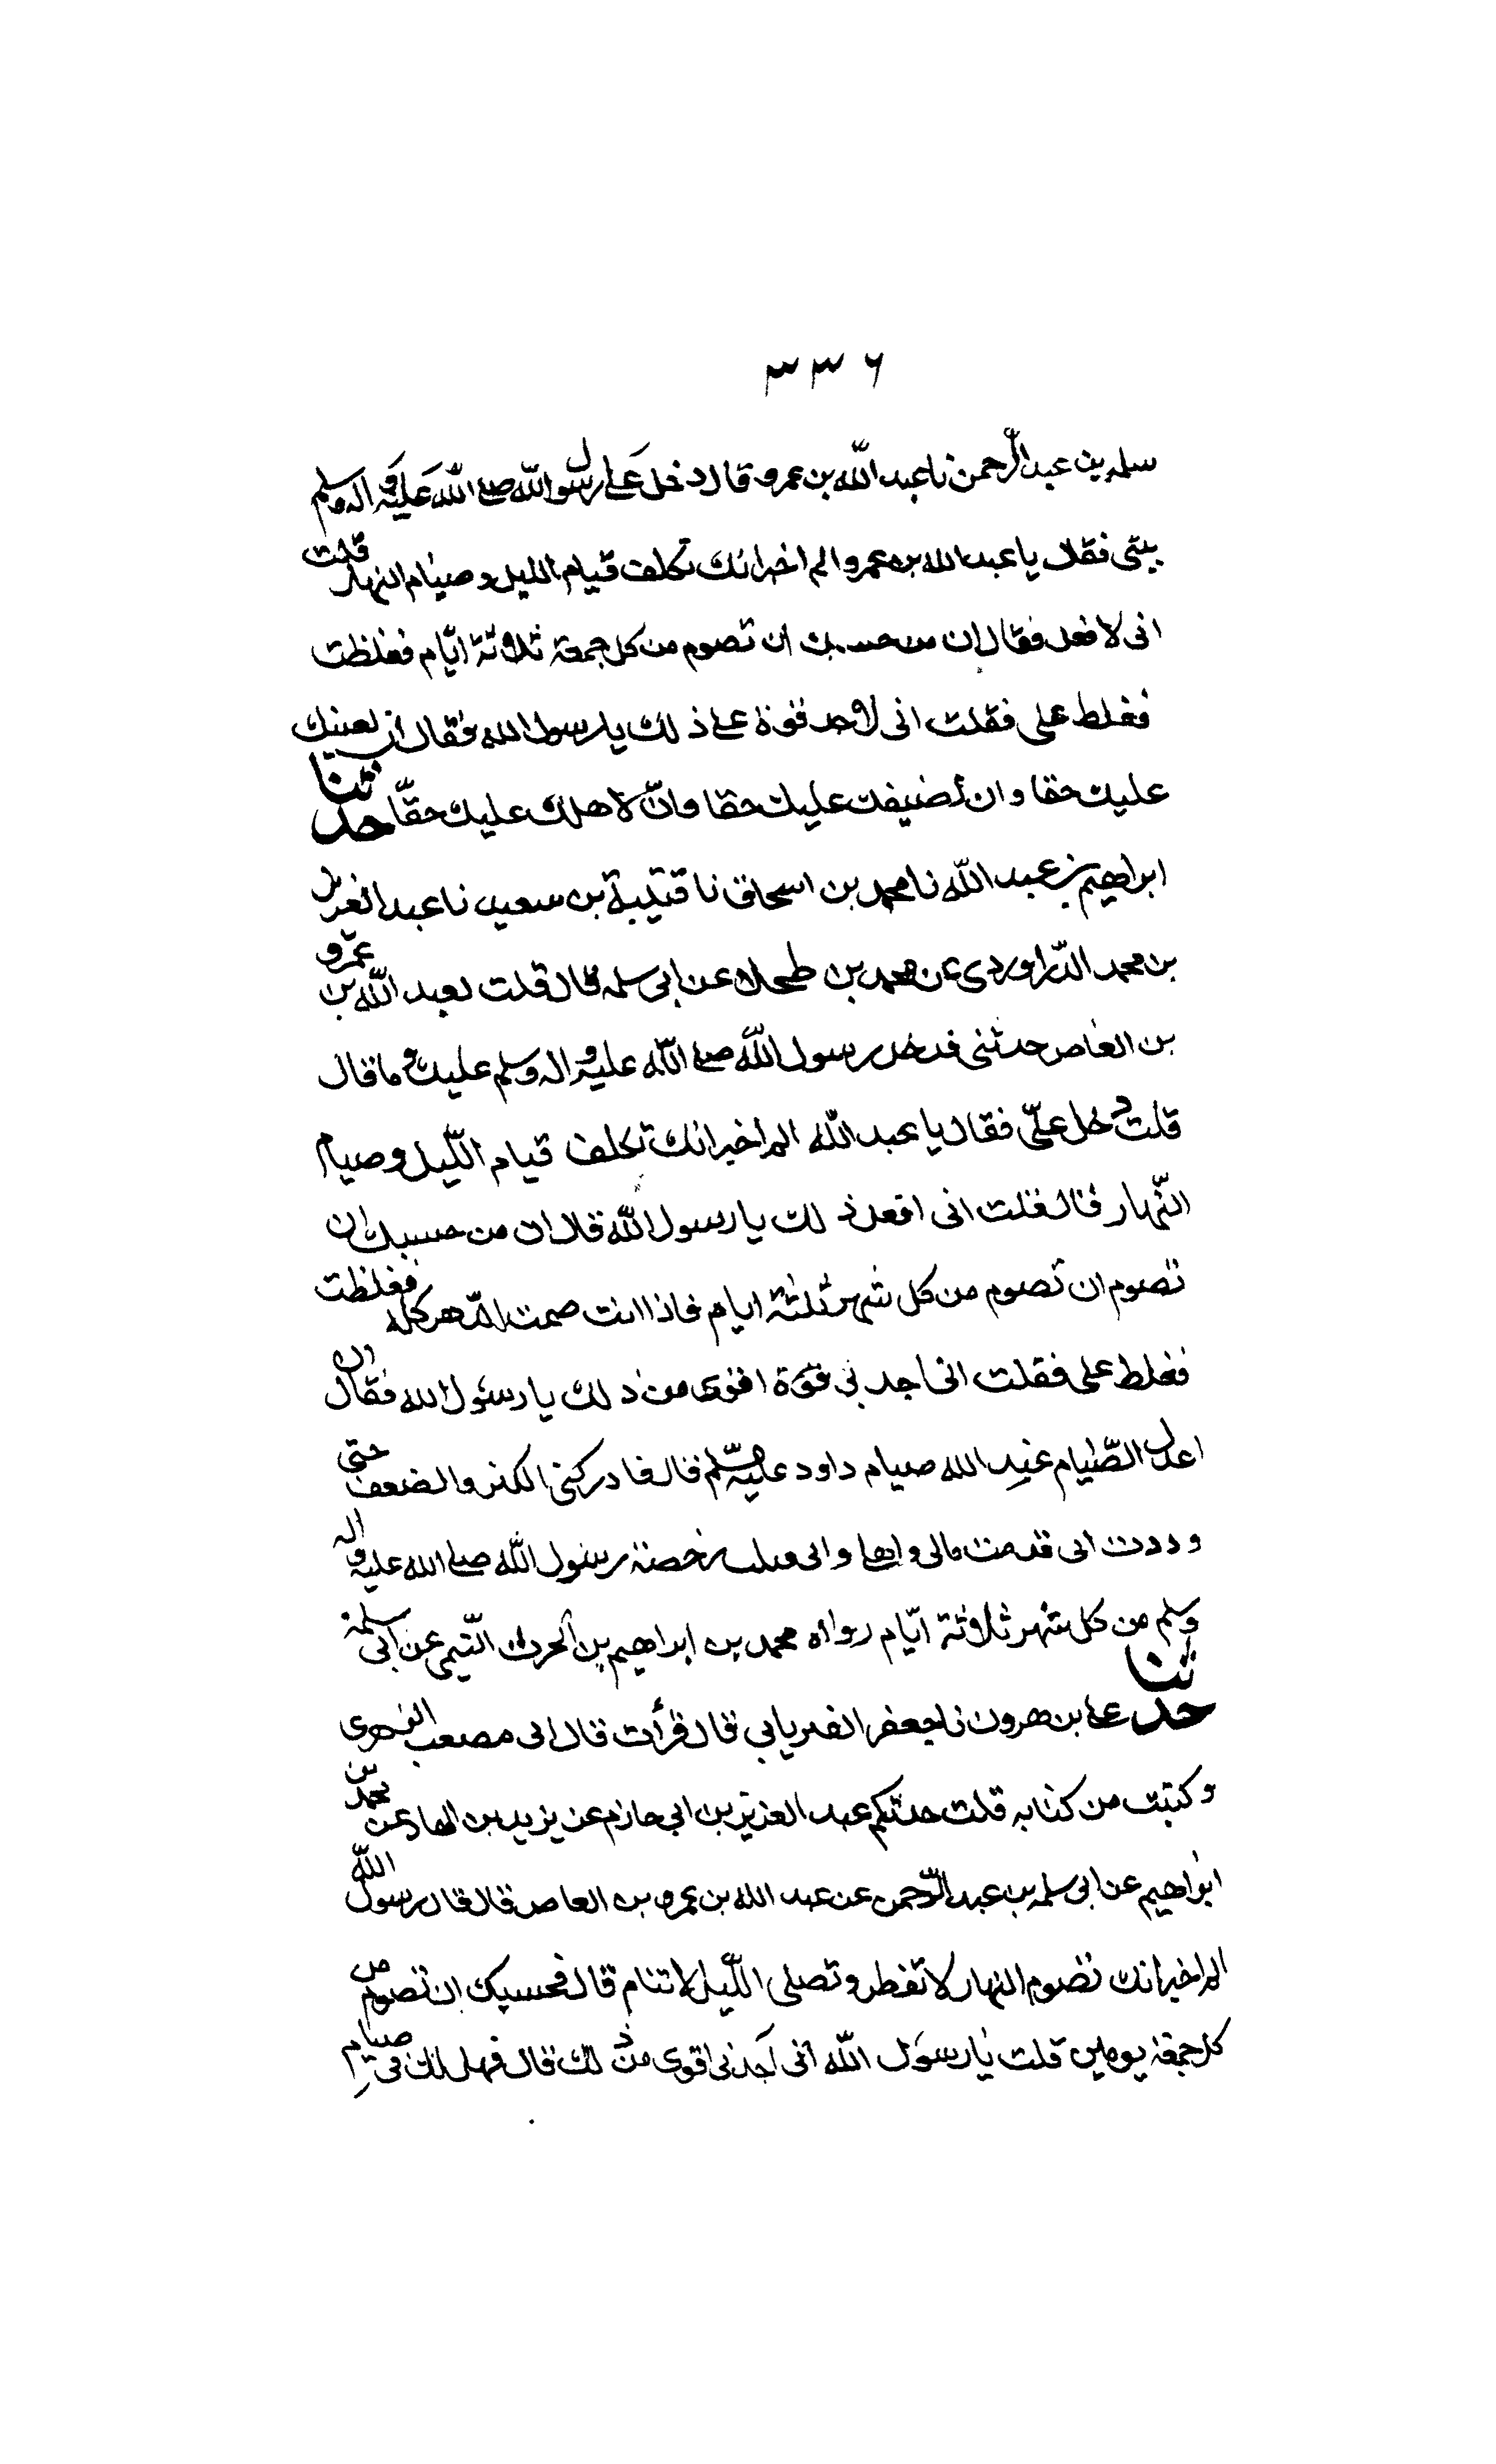 ٣٣٦
سلمه بن عبد الرحمن نا عبد الله بن عمرو قال دخل على رسول الله صلى الله عليه واله وسلم
بيتى فقال يا عبد الله بن عمرو الم اخبر انك تكلف قيام الليل وصيام النهار قلت
انى لافعل فقال ان من حسبك ان تصوم من كل جمعة ثلاثة ايام فغلظت
فغلظ على فقلت انى لاجد قوة على ذلك يا رسول الله فقال ان لعينيك
عليك حقا وان لضيفك عليك حقا وان لاهلك عليك حقا حدثنا
ابراهيم بن عبد الله نا محمد بن اسحاق نا قتيبة بن سعيد نا عبد العزيز
بن محمد الدراوردى عن محمد بن طحلاء عن ابى سلمه قال قلت لعبد الله بن عمرو
بن العاص حدثنى فدخل رسول الله صلى الله عليه واله وسلم عليك وما قال
قلت دخل على فقال يا عبد الله الم اخبر انك تكلف قيام الليل وصيام
النهار قال فقلت انى افعل ذلك يا رسول الله قال ان من حسبك ان
تصوم ان تصوم من كل شهر ثلثة ايام فاذا انت صمت الدهر كله فغلظت
فغلظ على فقلت انى اجد بى قوة اقوى من ذلك يا رسول الله فقال ان
اعدل الصيام عند الله صيام داود عليه السلم قال فادركنى الكبر والضعف حتى
وددت انى قدمت مالى واهلى وانى قبلت رخصة رسول الله صلى الله عليه واله
وسلم من كل شهر ثلاثة ايام رواه محمد بن ابراهيم بن الحرث التيمى عن ابى سلمة
حدثنا على بن هرون نا جعفر الفريابي قال قرأت قال ابى مصعب الزهرى
وكتبت من كتابه قلت حدثكم عبد العزيز بن ابي حازم عن يزيد بن الهاد عن محمد بن
ابراهيم عن ابى سلمه بن عبد الرحمن عن عبد الله بن عمرو بن العاص قال قال رسول الله
الم اخبر انك تصوم النهار لا تفطر وتصلى الليل لا تنام قال فحسبك ان تصوم من
كل جمعة يومين قلت يا رسول الله انى اجد بى اقوى من ذلك قال فهل لك فى صيام